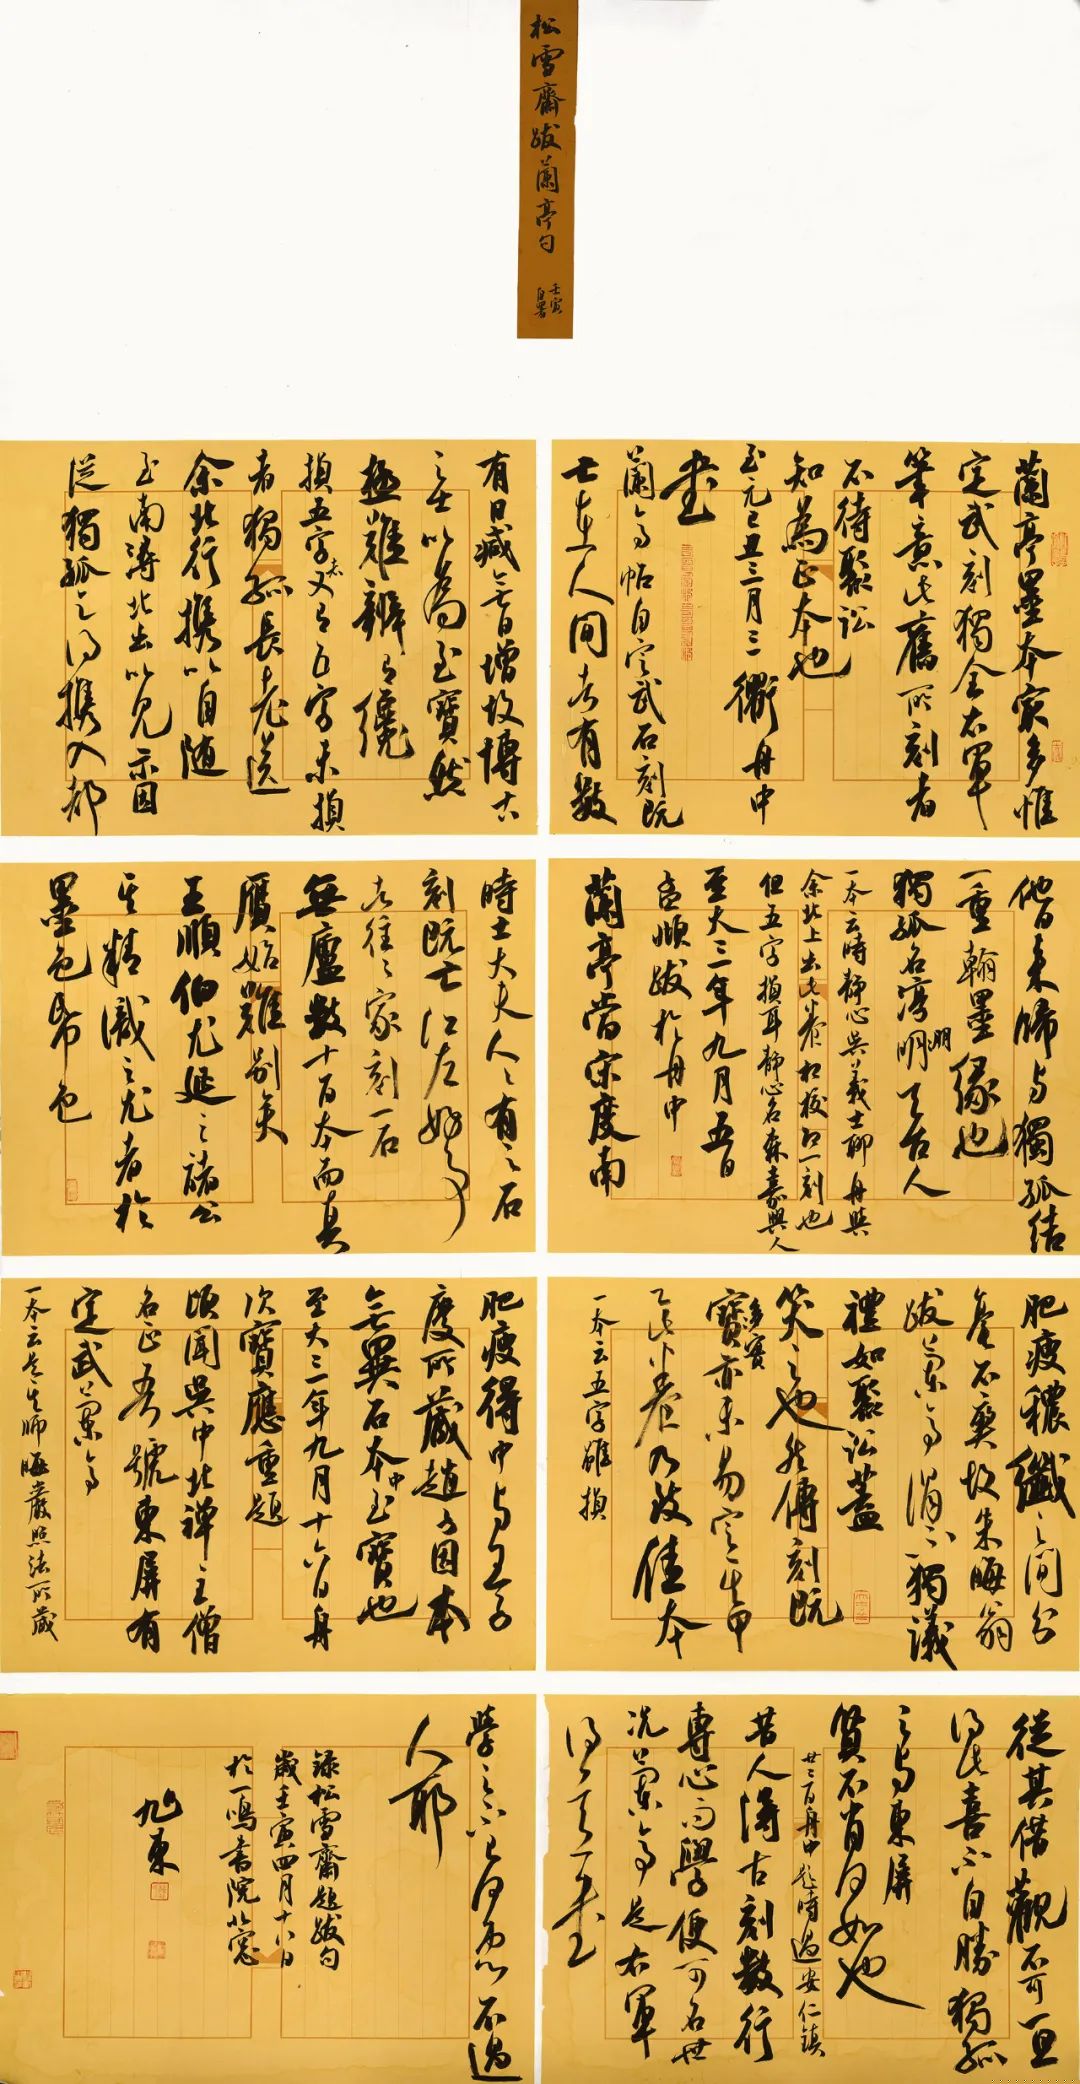 松雪齋跋蘭亭句
壬寅
自署
蘭亭墨本最多惟
定武刻獨全右軍
筆意此舊所刻者
不待聚訟
知為正本也
至元己丑三月三衢舟中
書
蘭亭帖自定武石刻既
亡在人間者有數
有日減無日增故博古
之士以為至寶然
極難辨有纔
損五字者又有五字未損
者獨孤長老送
余北行攜以自隨
至南潯北出以見示因
從獨孤乞得攜入都
他日來歸與獨孤結
一重翰墨緣也
獨孤名淳朋明天台人
一本云時靜心吳義士聊舟與
余北上出此卷相校乃一刻也
但五字損耳靜心名森嘉興人
至大三年九月五日
孟頫跋於舟中
蘭亭當宋度南
時士大夫人人有之石
刻既亡江左好事
者往往家刻一石
無慮數十百本而真
贗始難別矣
王順伯尤延之諸公
其精識之尤者於
墨色帋色
肥瘦穠纖之間分
毫不爽故朱晦翁
跋蘭亭謂不獨議
禮如聚訟蓋
笑之也然傳刻既
多寶亦未易定其甲
乙此卷乃致佳本
一本云五字雖損
肥瘦得中與王子
慶所藏趙子固本
無異石本中至寶也
至大三年九月十六日舟
次寶應重題
頃聞吳中北禪主僧
名正吾號東屏有
定武蘭亭
一本云是其師晦巖照法所藏
從其借觀不可一旦
得此喜不自勝獨孤
之與東屏
賢不肖何如也
廿三日舟中題時過安仁鎮
昔人得古刻數行
專心而學便可名世
況蘭亭是右軍
得意書
學之不已何患不過
人耶
錄松雪齋題跋句
歲壬寅四月十八日
於一鳴書院北窗
旭東